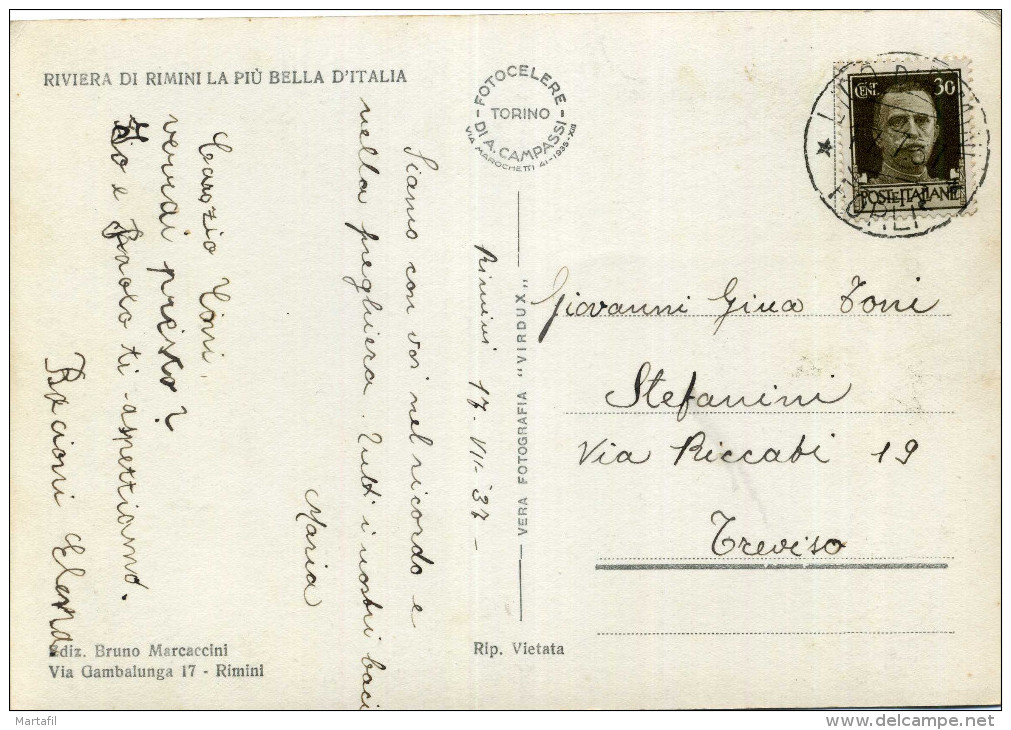 RIVIERA DI RIMINI LA PIÙ BELLA D'ITALIA
FOTOCELERE
TORINO
DI A. CAMPASSI
VIA MAROCHETTI 41-1935-XIII
CENT. 30
POSTE ITALIANE
FORLI
Rimini 17-VII-37-
Siamo con voi nel ricordo e
nella preghiera. Tutti i nostri baci
Maria
Toni,
verrai presto?
Io e Paolo ti aspettiamo.
Bacioni Elena
VERA FOTOGRAFIA "VIRDUX"
Giovanni Gina Toni
Stefanini
Via Riccati 19
Treviso
Ediz. Bruno Marcaccini
Via Gambalunga 17 - Rimini
Rip. Vietata
Martafil
delcampe.net